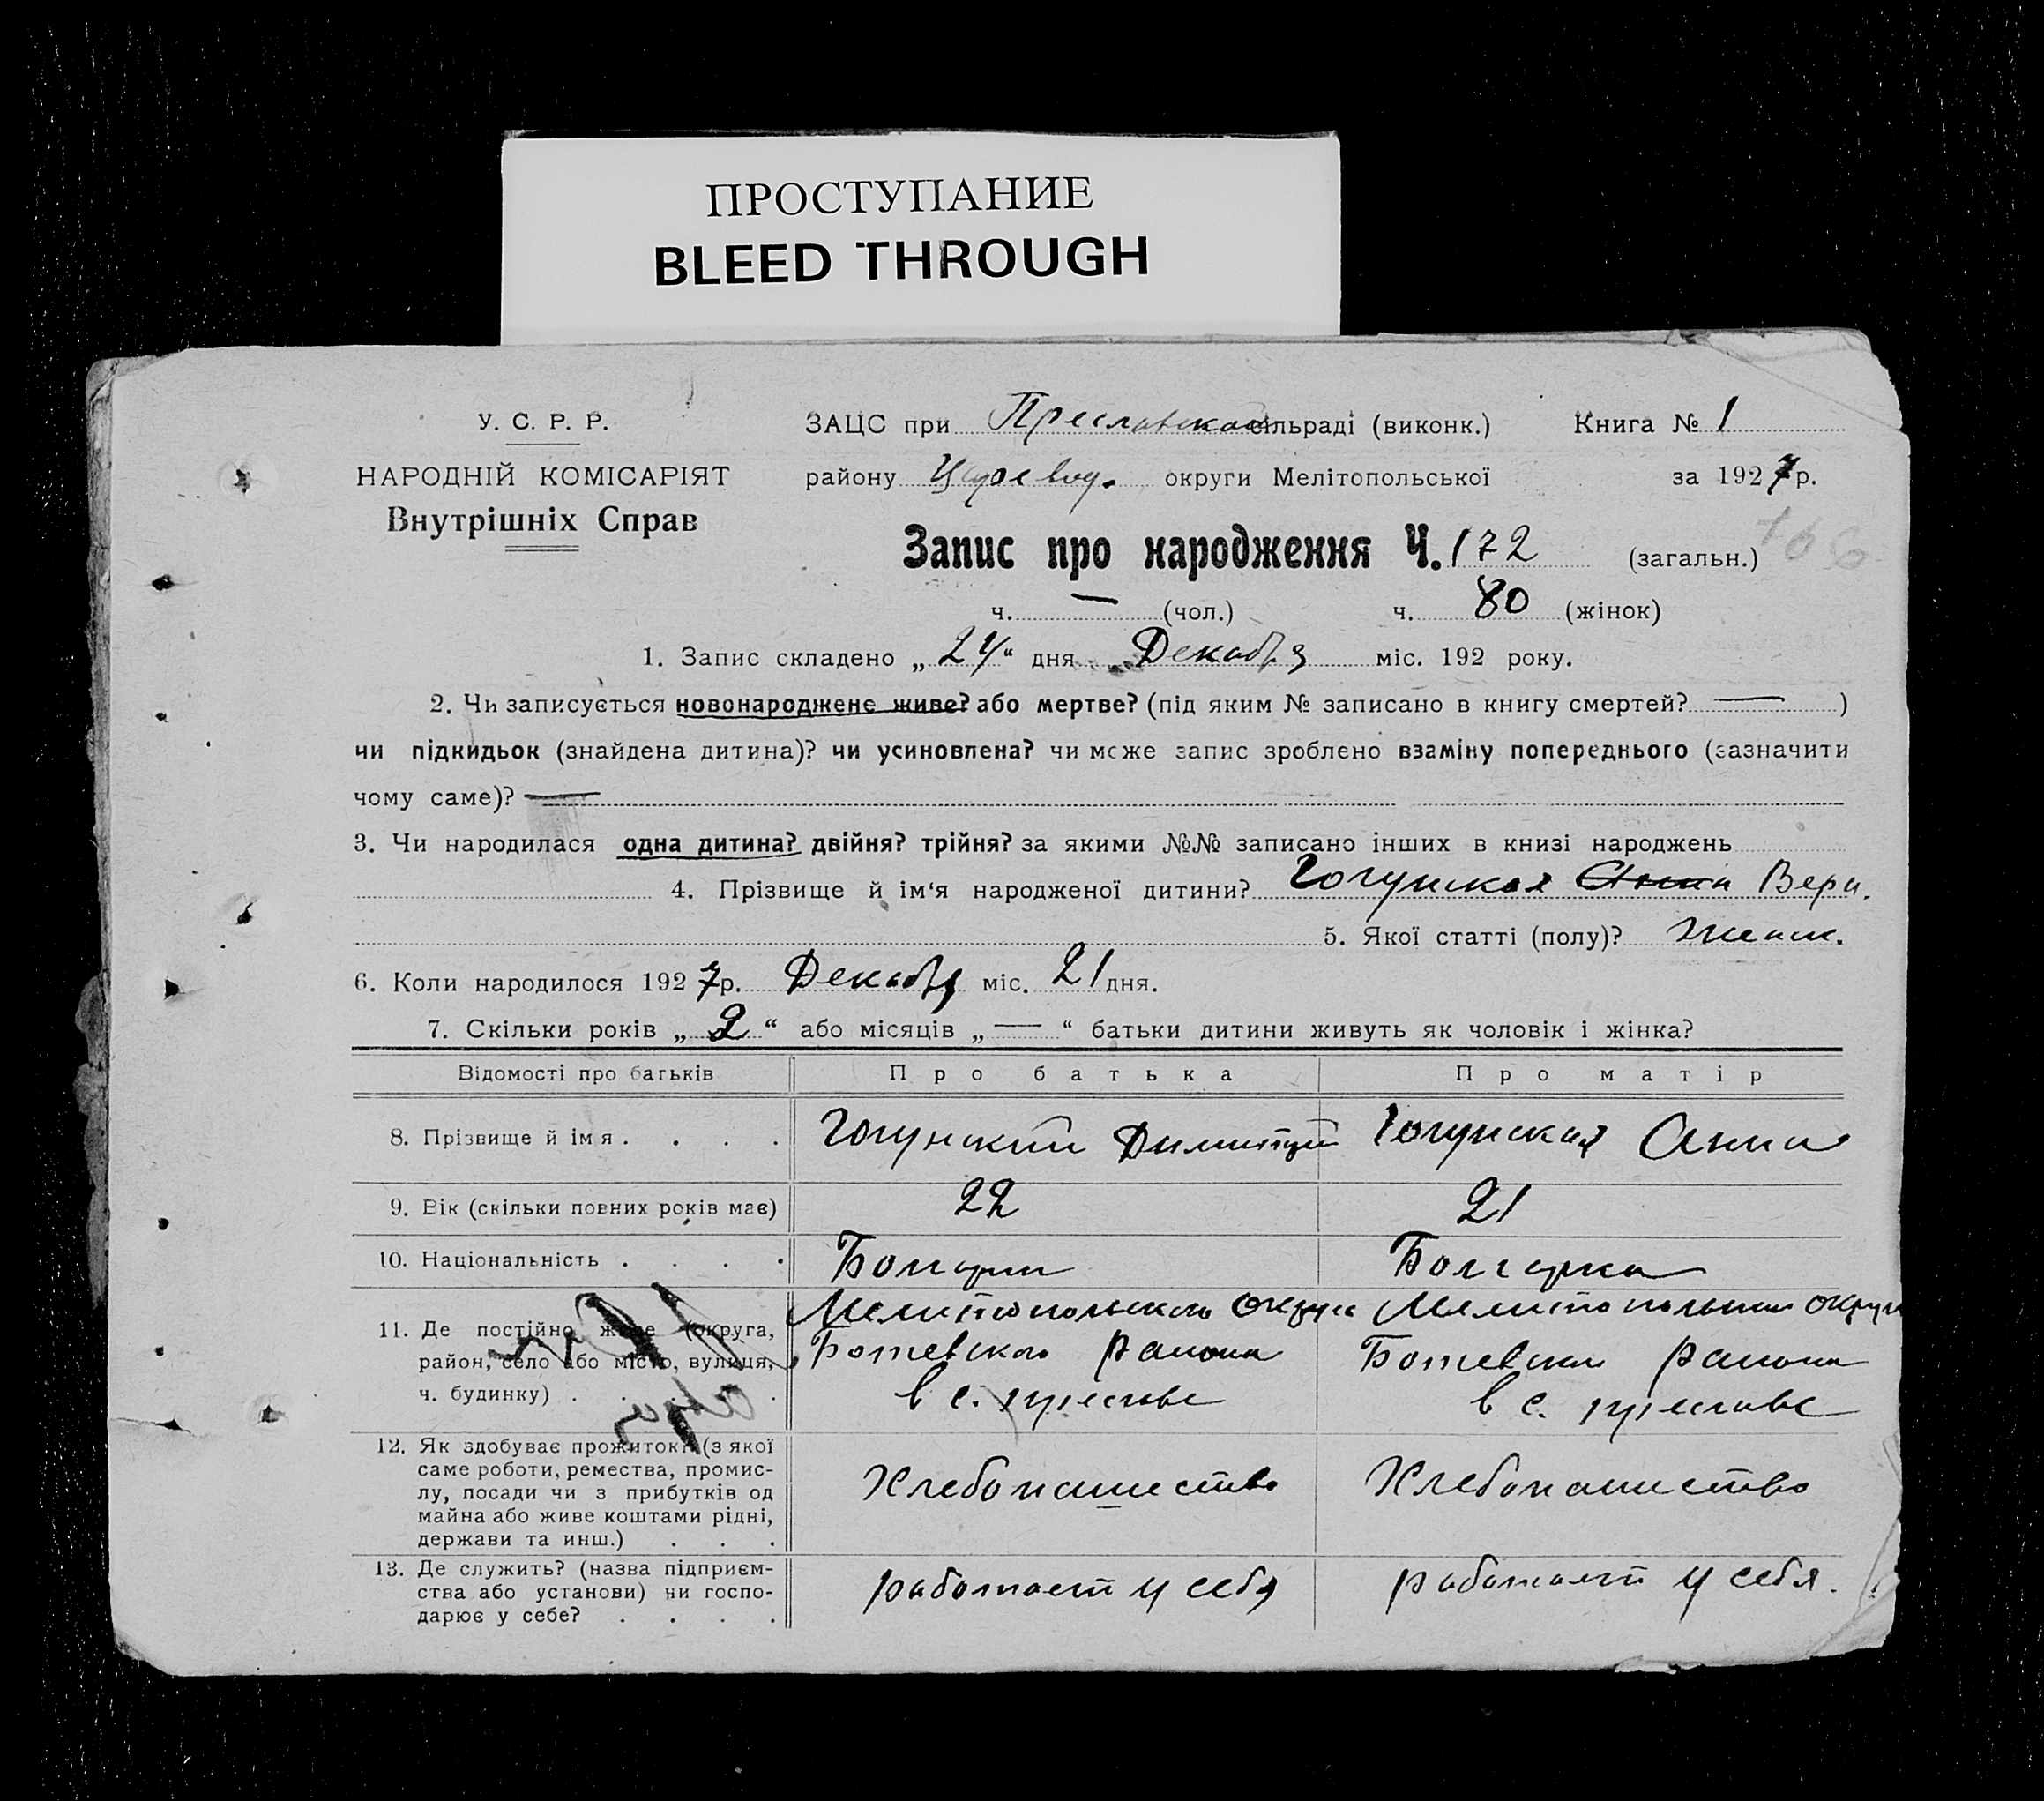 ПРОСТУПАНИЕ
BLEED THROUGH
У. С. Р. Р.
НАРОДНІЙ КОМІСАРІЯТ
Внутрішніх Справ
ЗАЦС при Преславской сільраді (виконк.) Книга № 1
району Царевод. округи Мелітопольської за 1927 р.
Запис про народження Ч. 172 (загальн.) 166
ч. — (чол.) ч. 80 (жінок)
1. Запис складено „ 24 “ дня Декабря міс. 192 року.
2. Чи записується новонароджене живе? або мертве? (під яким № записано в книгу смертей? — )
чи підкидьок (знайдена дитина)? чи усиновлена? чи може запис зроблено взаміну попереднього (зазначити
чому саме)? —
3. Чи народилася одна дитина? двійня? трійня? за якими №№ записано інших в книзі народжень
4. Прізвище й ім‘я народженої дитини? Гогунская Анна Вера.
5. Якої статті (полу)? Женск.
6. Коли народилося 1927 р. Декабря міс. 21 дня.
7. Скільки років „ 2 “ або місяців „ — “ батьки дитини живуть як чоловік і жінка?
Відомості про батьків Про батька Про матір
8. Прізвище й імя . . . . Гогунский Димитрий Гогунская Анна
9. Вік (скільки повних років має) 22 21
10. Національність . . . . Болгарин Болгарка
11. Де постійно живе (округа, район, село або місто, вулиця, ч. будинку) . . . .
Мелитопольского округа Мелитопольском округа
Ботевского района Ботевском района
в с. преславе в с. преславе
12. Як здобуває прожиток? (з якої
саме роботи, ремества, промис-
лу, посади чи з прибутків од
майна або живе коштами рідні,
держави та инш.) . . .
Хлебопашество Хлебопашество
13. Де служить? (назва підприєм-
ства або установи) чи госпо-
дарює у себе? . . . .
работает у себя работает у себя.